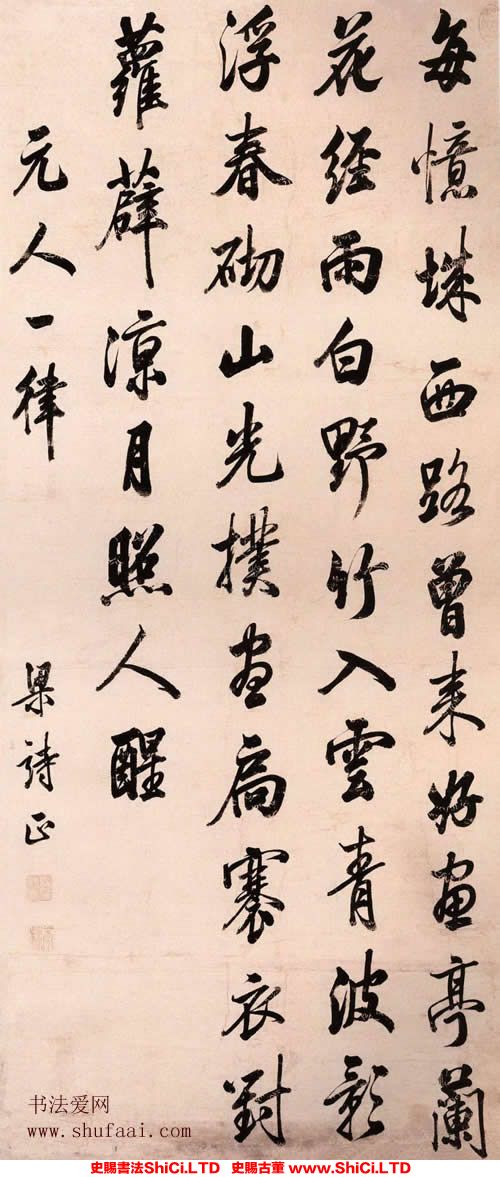 每憶城西路曾來好畫亭蘭
花經雨白野竹入雲青波影
浮春砌山光撲畫扃褰衣對
蘿薜涼月照人醒
元人一律
梁詩正
书法爱网
www.shufaai.com
史賜書法ShiCi.LTD 史賜古董 www.ShiCi.LTD